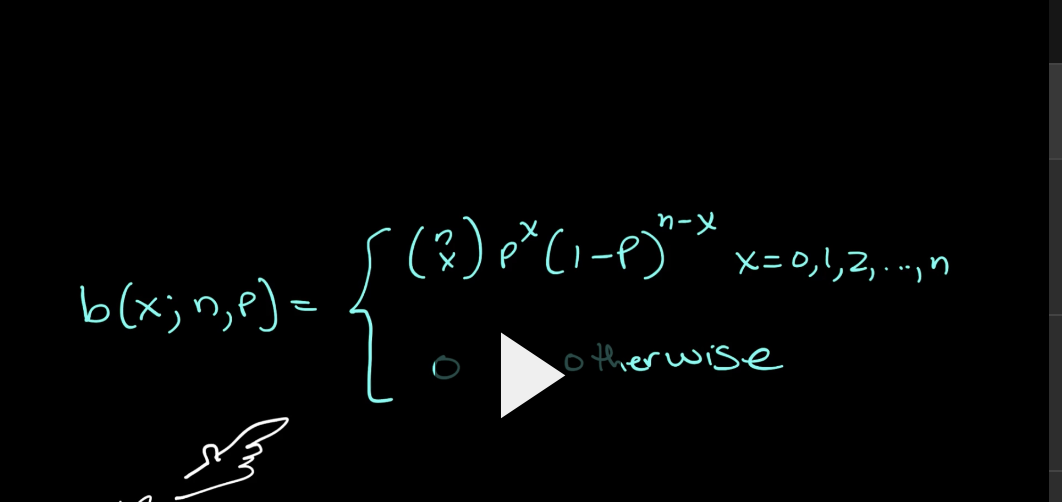 b(x; n, p) = { (n x) p^x (1-p)^{n-x} x=0,1,2,...,n
0 otherwise